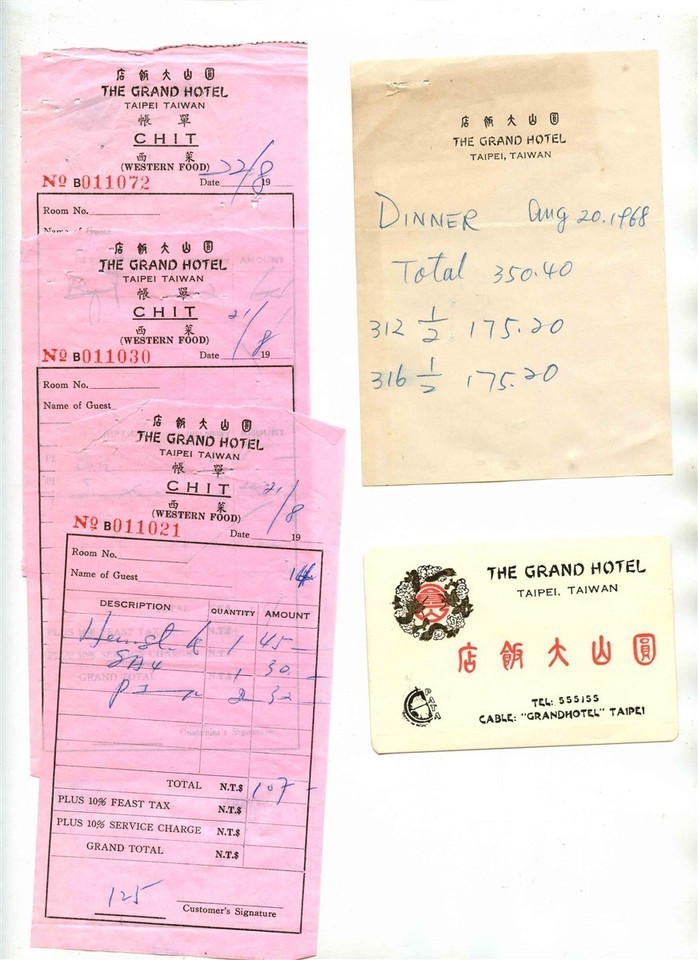 店飯大山圓
THE GRAND HOTEL
TAIPEI TAIWAN
帳 單
CHIT
西 菜
(WESTERN FOOD)
Nº B011072
Date 22/8 19
Room No.
Name of Guest
店飯大山圓
THE GRAND HOTEL
TAIPEI TAIWAN
帳 單
CHIT
西 菜
(WESTERN FOOD)
Nº B011030
Date 21/8 19
Room No.
Name of Guest
店飯大山圓
THE GRAND HOTEL
TAIPEI TAIWAN
帳 單
CHIT
西 菜
(WESTERN FOOD)
Nº B011021
Date 21/8 19
Room No.
Name of Guest
DESCRIPTION QUANTITY AMOUNT
1 45-
1 30-
2 32-
TOTAL N.T.$ 107-
PLUS 10% FEAST TAX N.T.$
PLUS 10% SERVICE CHARGE N.T.$
GRAND TOTAL N.T.$
125
Customer's Signature
店飯大山圓
THE GRAND HOTEL
TAIPEI, TAIWAN
DINNER Aug 20. 1968
Total 350.40
312 1/2 175.20
316 1/2 175.20
THE GRAND HOTEL
TAIPEI, TAIWAN
店飯大山圓
PATA
TEL: 555155
CABLE: "GRANDHOTEL" TAIPEI